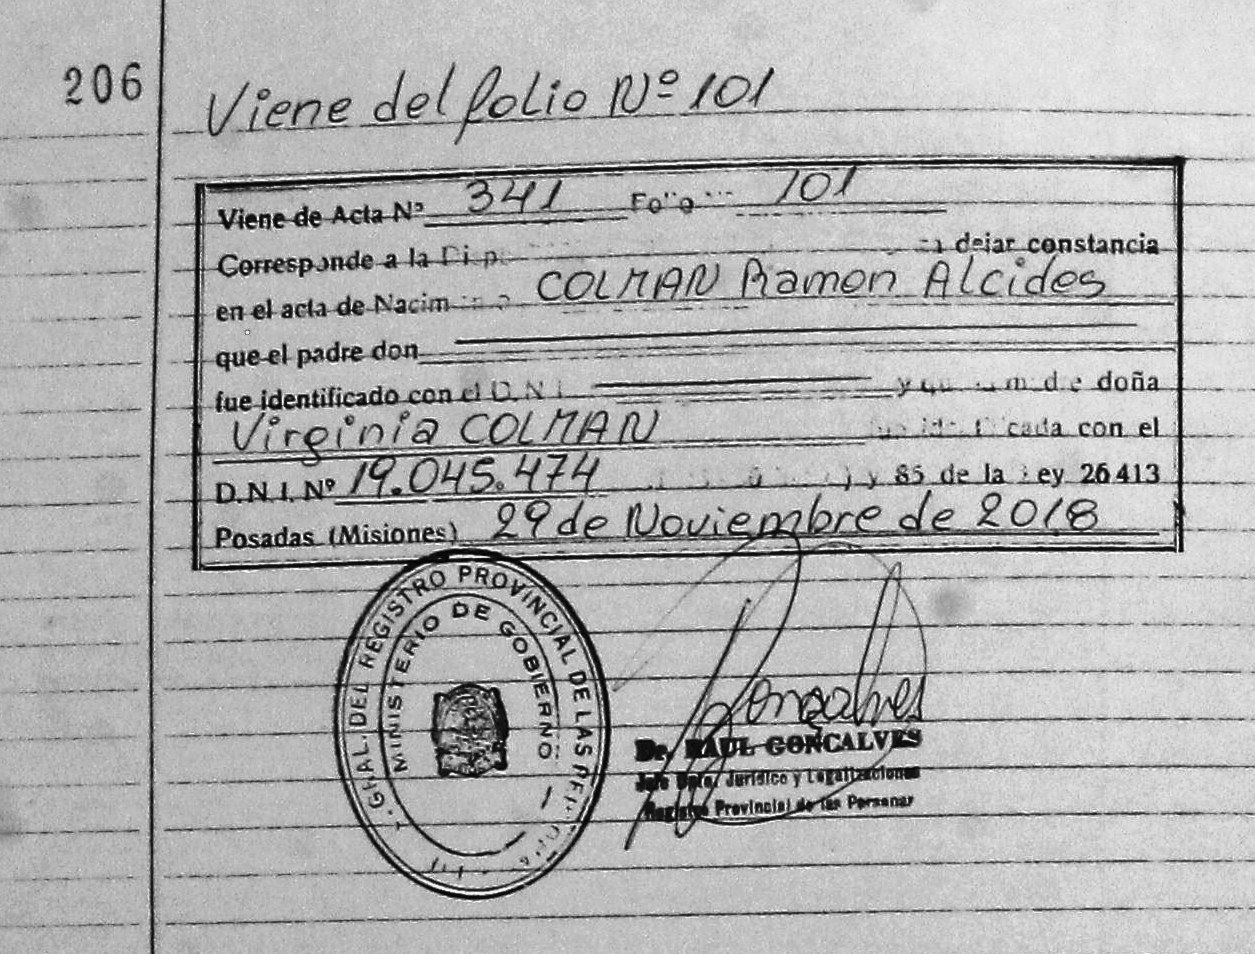 206
Viene del folio Nº 101
Viene de Acta Nº 341 Folio 101
Corresponde a la dejar constancia
en el acta de Nacim COLMAN Ramon Alcides
que el padre don
fue identificado con el D.N.I. y doña
Virginia COLMAN cada con el
D.N.I. Nº 19.045.474 y 85 de la Ley 26413
Posadas (Misiones) 29 de Noviembre de 2018
GRAL. DEL REGISTRO PROVINCIAL DE LAS
MINISTERIO DE GOBIERNO
Gonçalves
Dr. RAUL GONÇALVES
Jefe Dpto. Jurídico y Legalizaciones
Registro Provincial de las Personas